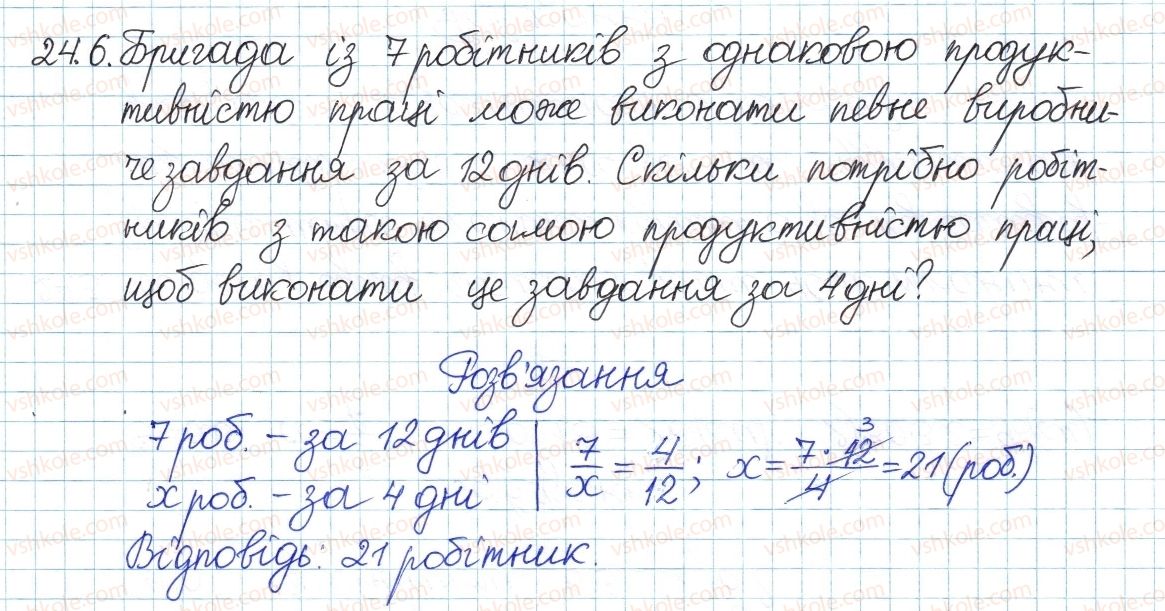 24.6. Бригада із 7 робітників з однаковою продук-
тивністю праці може виконати певне виробни-
че завдання за 12 днів. Скільки потрібно робіт-
ників з такою самою продуктивністю праці,
щоб виконати це завдання за 4 дні?
Розв'язання
7 роб. – за 12 днів | 7/x = 4/12; x = 7·12/4 3 = 21 (роб.)
x роб. – за 4 дні
Відповідь: 21 робітник.
vshkole.com